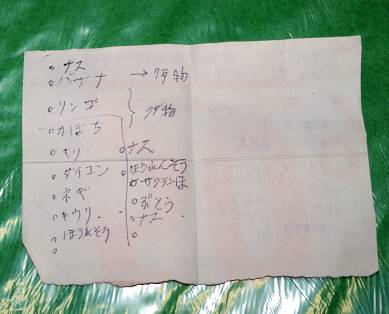 ナス
バナナ → クダ物
リンゴ
クダ物
カボち
キリ
ダイコン
ネギ
キウリ
ほうれそう
ナス
ほうれんそう
サクランぼ
ぶどう
ナス